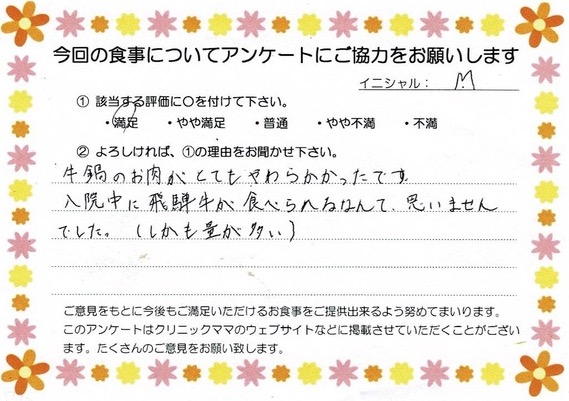 今回の食事についてアンケートにご協力をお願いします
イニシャル： M
① 該当する評価に○を付けて下さい。
・満足 ・やや満足 ・普通 ・やや不満 ・不満
② よろしければ、①の理由をお聞かせ下さい。
牛鍋のお肉がとてもやわらかかったです
入院中に飛騨牛が食べられるなんて、思いません
でした。（しかも量が多い）
ご意見をもとに今後もご満足いただけるお食事をご提供出来るよう努めてまいります。
このアンケートはクリニックママのウェブサイトなどに掲載させていただくことがござい
ます。たくさんのご意見をお願い致します。